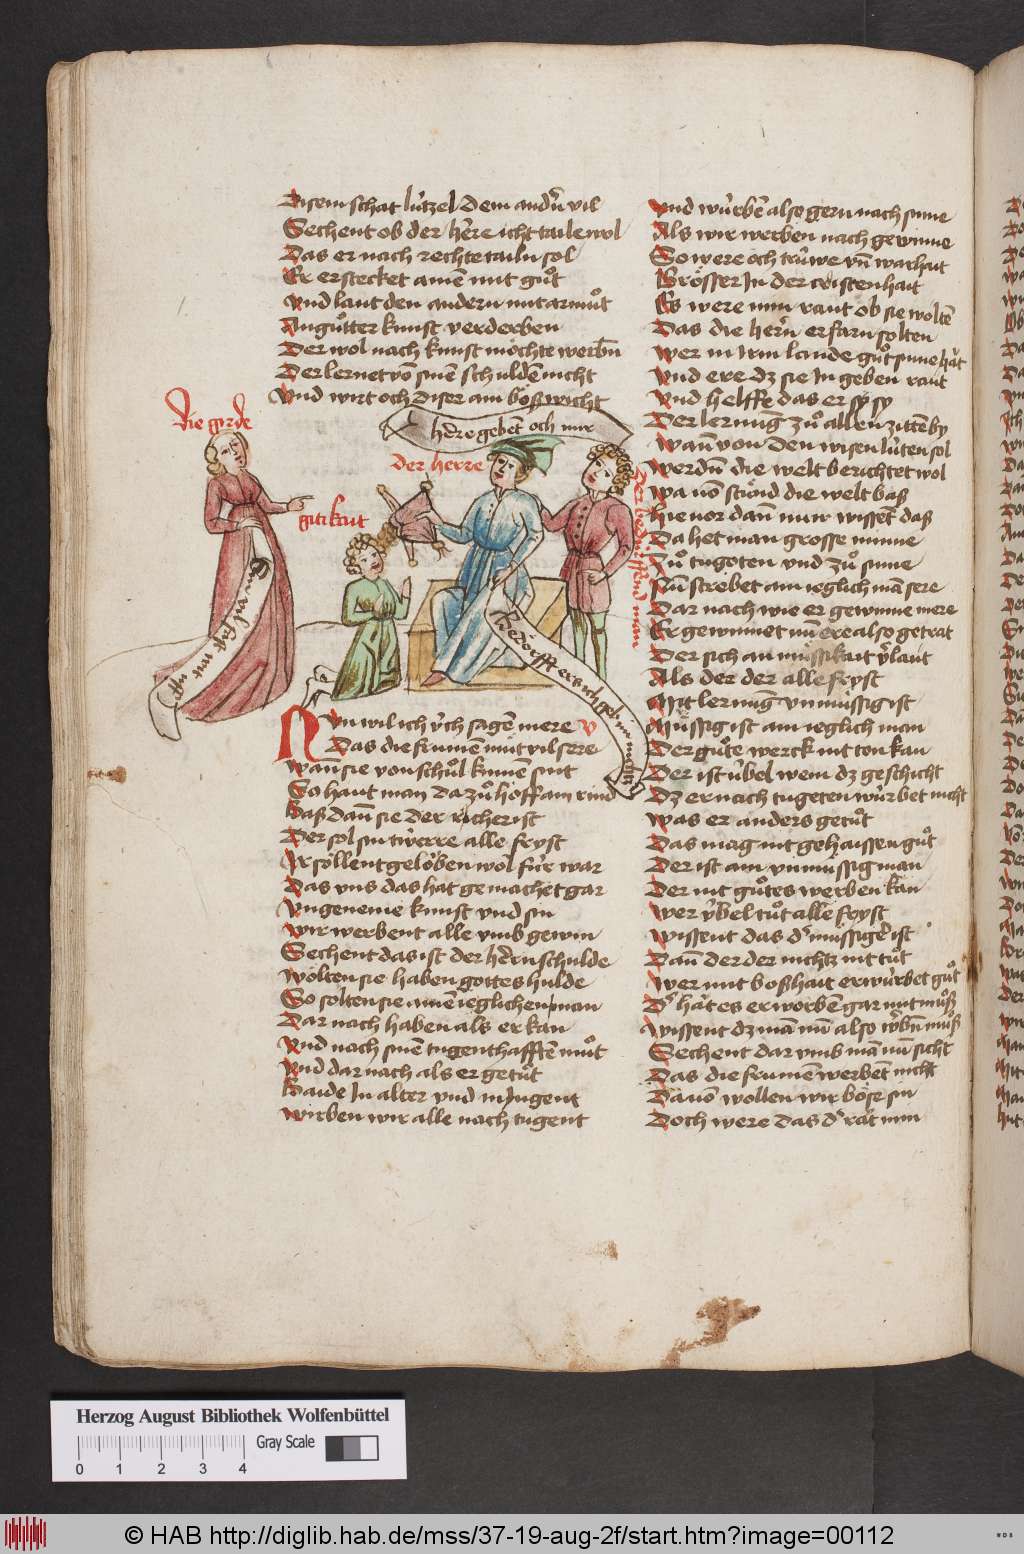 Disem schat lu̍tzel dem andn̄ vil
Sechent ob der hērre icht taile wol
Das er nach rechte tailn sol
Er erstecket ainen̄ mit gůt
Vnd laut den andern mit armůt
An gůtter kunst verderben
Der wol nach kunst möchte werbn̄
Der lernet vō sinen̄ schulden̄ nicht
Vnd wirt och diser ain bößwicht
hērre gebent och mir
Die girde
der herre
gitikait
Der bedurffend man
Nun wil ich v̍ch sagen̄ mere
Das die frumen̄ müt vil sere
Wan̄ sie von schůl kumen̄ sint
So haut man da zů hoff ain rind
Baß dan̄ sie der richer ist
Der sol sin tw̍erre alle fryst
Ir söllent gelöben wol fu̍r war
Das vns das hat gemachet gar
Vngeneme kunst vnd sin
Wir werbent alle vmb gewin
Sechent das ist der herrn schulde
Wölten sie haben gottes hulde
So solten sie ainen̄ ieglichen man
Dar nach haben als er kan
Vnd nach sinen̄ tugenthafften̄ můt
Vnd dar nach als er getůt
Baide In alter vnd In Iugent
Wirben wir alle nach tugent
Vnd wu̍rben̄ also gern nach sinne
Als wir werben nach gewinne
So were och tru̍we vn̄ warhait
Grösser In der cristenhait
Es were min raut ob sie wolten̄
Das die hern̄ erfarn solten
Wer in Irm lande gůt sinne hät
Vnd ere dz sie In geben raut
Vnd helffe das er sy sy
Der lernunḡ zů allen zitten by
Wan̄ von den wisen lu̍ten sol
Werdn̄ die welt berichtet wol
Wa von̄ stönd die welt baß
Hie vor dan̄ nuir wissent̄ daß
Da het man grosse minne
Zů tugoten vnd zů sinne
Nun̄ strebet ain ieglich mā sere
Dar nach wie er gewinne mere
Er gewinnet nim̄ ere also getrat
Der sich an müssikait v̍lant
Als der der alle fryst
Mit lernunḡ vnmüssig ist
Müssig ist ain ieglich man
Der gůte werck nit ton kan
Der ist u̍bel wem dz geschicht
Dz er nach tugeten wu̍rbet nicht
Was er anders getůt
Das mag nit gehaissen gůt
Der ist ain vnmüssig man
Der nit gůtes werben kan
Wer v̍bel tůt alle fryst
Wissent das d' müssiger̄ ist
Dan̄ der der nichtz nit tůt
Wer mit boßhait erwu̍rbet gůt
D' hät es erworben̄ gar mit můß
Wissent dz mā nun̄ also w̍bn̄ můß
Sechent dar vmb mā nun̄ sicht
Das die frumen̄ werbet̄ nicht
Da von̄ wollen wir böse sin
Doch were das d' rät min
Herzog August Bibliothek Wolfenbüttel
Gray Scale
0 1 2 3 4
© HAB http://diglib.hab.de/mss/37-19-aug-2f/start.htm?image=00112